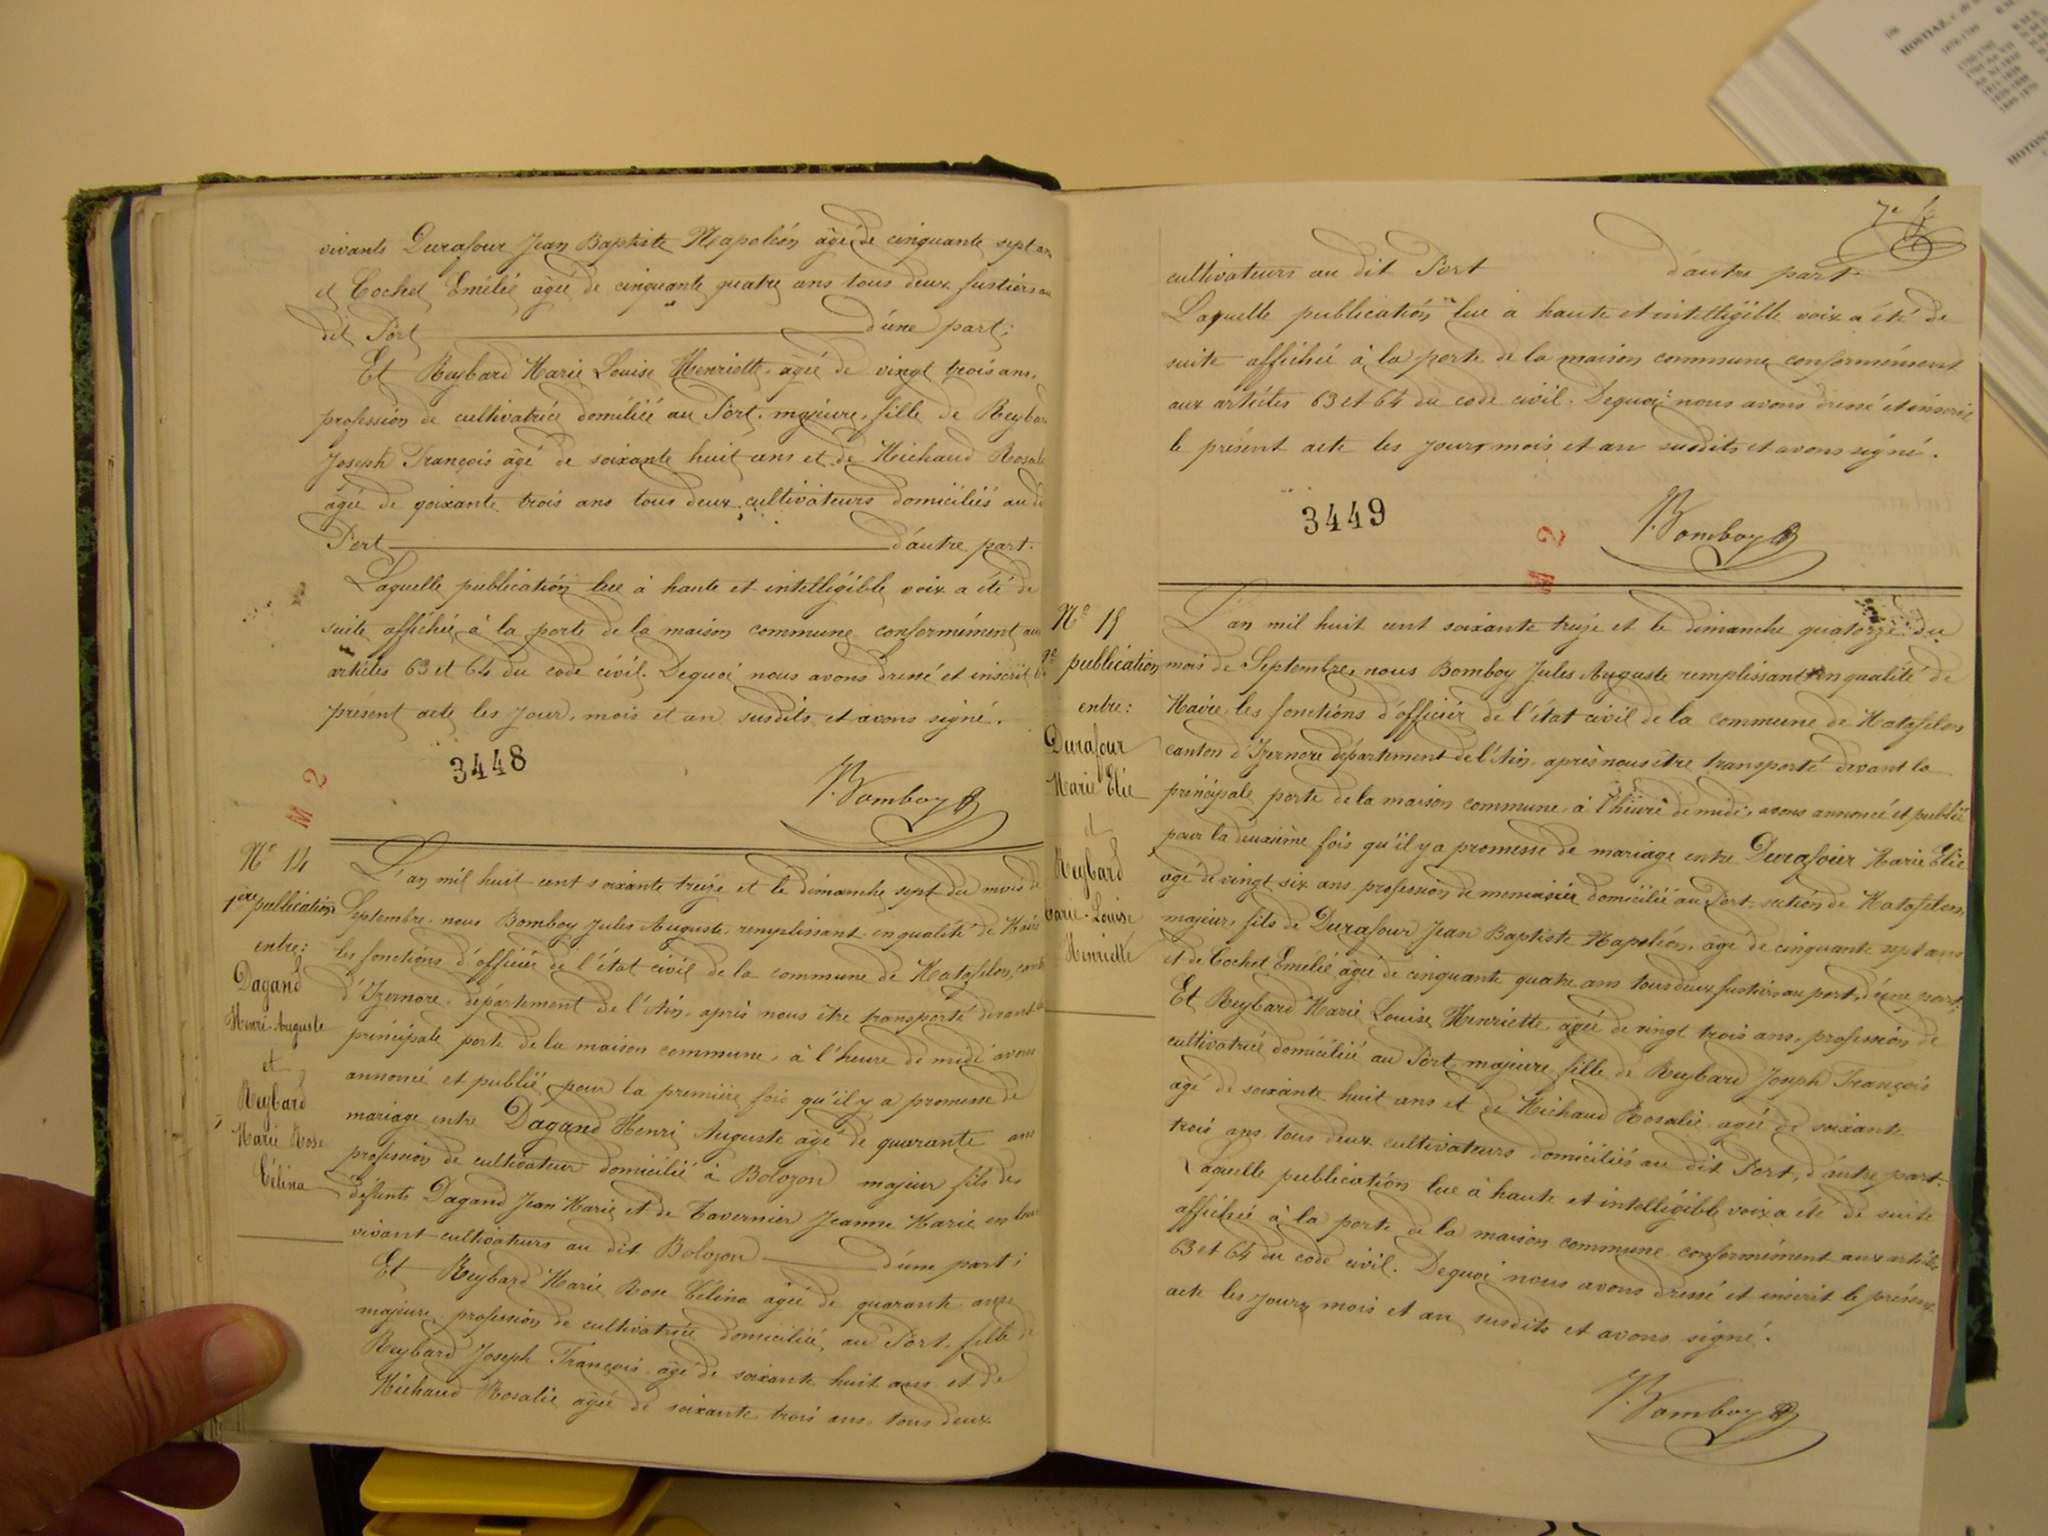 vivants Durafour Jean Baptiste Napoléon âgé de cinquante sept ans
et Cochet Emélie âgée de cinquante quatre ans tous deux fustiers au
dit Port d'une part;
Et Reybard Marie Louise Henriette, âgée de vingt trois ans,
profession de cultivatrice domiciliée au Port, majeure, fille de Reybard
Joseph François âgé de soixante huit ans et de Michaud Rosalie
âgée de soixante trois ans tous deux cultivateurs domiciliés au dit
Port d'autre part.
Laquelle publication lue à haute et intelligible voix a été de
suite affichée à la porte de la maison commune conformément aux
articles 63 et 64 du code civil. De quoi nous avons dressé et inscrit le
présent acte les jour, mois et an susdits et avons signé.
3448
M 2
J. Bomboy
N° 14
1ère publication
entre:
Dagand
Henri Auguste
et
Reybard
Marie Rose
Célina
L'an mil huit cent soixante treize et le dimanche sept du mois de
Septembre, nous Bomboy Jules Auguste, remplissant en qualité de Maire
les fonctions d'officier de l'état civil de la commune de Matafelon, canton
d'Izernore, département de l'Ain, après nous être transporté devant la
principale porte de la maison commune, à l'heure de midi avons
annoncé et publié pour la première fois qu'il y a promesse de
mariage entre Dagand Henri Auguste âgé de quarante ans
profession de cultivateur domicilié à Bolozon majeur fils des
défunts Dagand Jean Marie et de Tavernier Jeanne Marie en leur
vivant cultivateurs au dit Bolozon d'une part;
Et Reybard Marie Rose Célina âgée de quarante ans
majeure, profession de cultivatrice domiciliée au Port, fille de
Reybard Joseph François âgé de soixante huit ans et de
Michaud Rosalie âgée de soixante trois ans tous deux
7e
cultivateurs au dit Port d'autre part.
Laquelle publication lue à haute et intelligible voix a été de
suite affichée à la porte de la maison commune conformément
aux articles 63 et 64 du code civil. De quoi nous avons dressé et inscrit
le présent acte les jours mois et an susdits et avons signé.
3449
M 2
J. Bomboy
N° 15
2e publication
entre:
Durafour
Marie Elie
et
Reybard
Marie-Louise
Henriette
L'an mil huit cent soixante treize et le dimanche quatorze du
mois de Septembre, nous Bomboy Jules Auguste remplissant en qualité de
Maire, les fonctions d'officier de l'état civil de la commune de Matafelon
canton d'Izernore département de l'Ain, après nous être transporté devant la
principale porte de la maison commune à l'heure de midi, avons annoncé et publié
pour la deuxième fois qu'il y a promesse de mariage entre Durafour Marie Elie
âgé de vingt six ans profession de menuisier domicilié au Port, section de Matafelon,
majeur, fils de Durafour Jean Baptiste Napoléon, âgé de cinquante sept ans
et de Cochet Emélie âgée de cinquante quatre ans tous deux fustiers au port, d'une part,
Et Reybard Marie Louise Henriette, âgée de vingt trois ans, profession de
cultivatrice domiciliée au Port, majeure fille de Reybard Joseph François
âgé de soixante huit ans et de Michaud Rosalie, âgée de soixante
trois ans, tous deux cultivateurs domiciliés au dit Port, d'autre part.
Laquelle publication lue à haute et intelligible voix a été de suite
affichée à la porte de la maison commune conformément aux articles
63 et 64 du code civil. De quoi nous avons dressé et inscrit le présent
acte les jours mois et an susdits et avons signé.
J. Bomboy